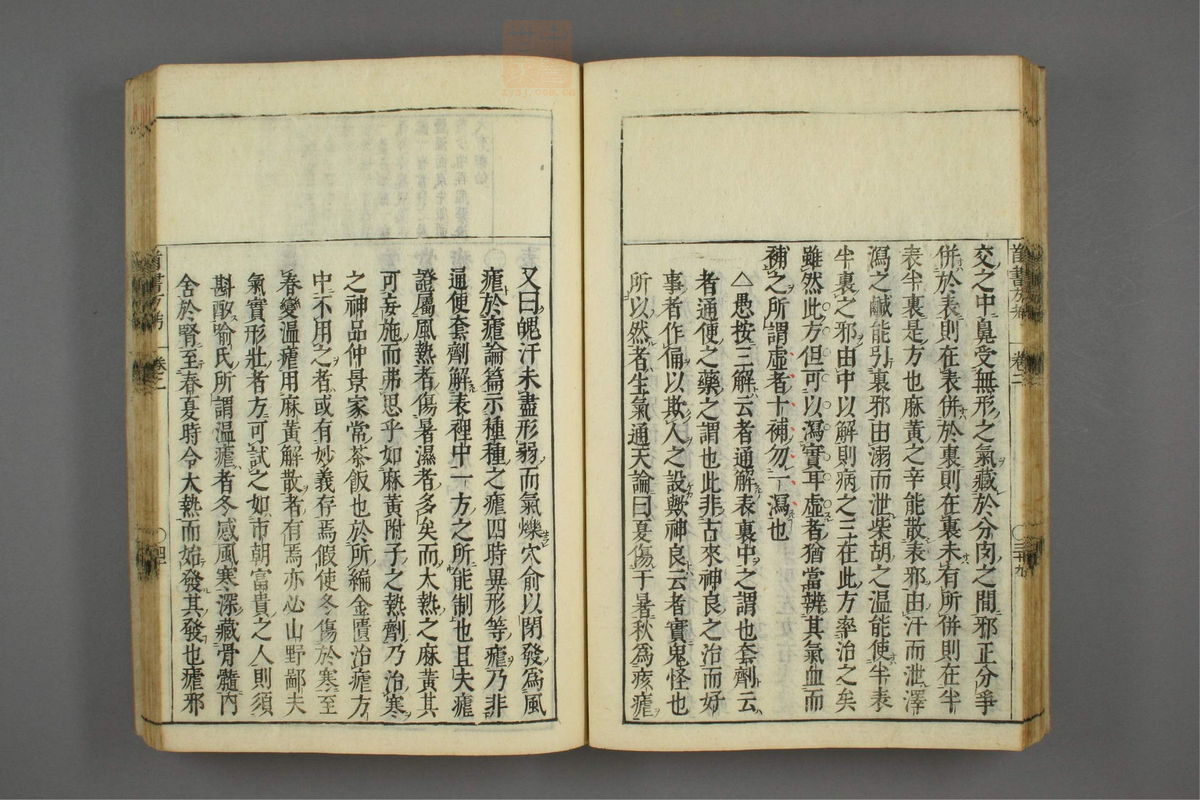 交之中鼻受無形之氣藏於分肉之間邪正分爭
併於表則在表併於裏則在裏未有所併則在半
表半裏是方也麻黃之辛能散表邪由汗而泄澤
瀉之鹹能引裏邪由溺而泄柴胡之温能使半表
半裏之邪由中以解則病之三在此方率治之矣
雖然此方但可以瀉實耳虛者猶當辨其氣血而
補之所謂虛者十補勿一瀉也
△愚按三解云者通解表裏中之謂也套劑云
者通便之藥之謂也此非古來神良之治而好
事者作俑以欺人之設歟神良云者實鬼怪也
所以然者生氣通天論曰夏傷于暑秋爲痎瘧
卷二
三十九
又曰魄汗未盡形弱而氣爍穴俞以閉發爲風
瘧於瘧論篇示種種之瘧四時異形等瘧乃非
通便套劑解表裡中一方之所能制也且夫瘧
證屬風熱者傷暑濕者多矣而大熱之麻黃其
可妄施而弗思乎如麻黃附子之熱劑乃治寒
之神品仲景家常茶飯也於所編金匱治瘧方
中不用之者或有妙義存焉假使冬傷於寒至
春變温瘧用麻黃解散者有焉亦必山野鄙夫
氣實形壯者方可試之如市朝富貴之人則須
斟酌喻氏所謂温瘧者冬感風寒深藏骨髓內
舍於腎至春夏時令大熱而始發其發也瘧邪
卷之二
四十